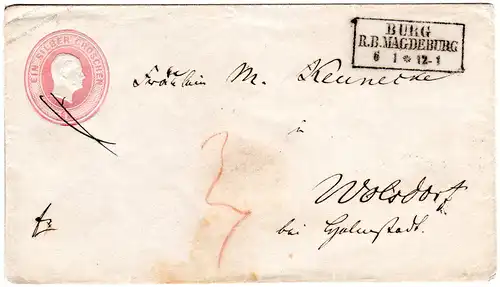 EIN SILBER GROSCHEN
BURG
R.B. MAGDEBURG
6 1 * 12-1
Fräulein M. Kennecke
in
Wolsdorf
bei Helmstedt.